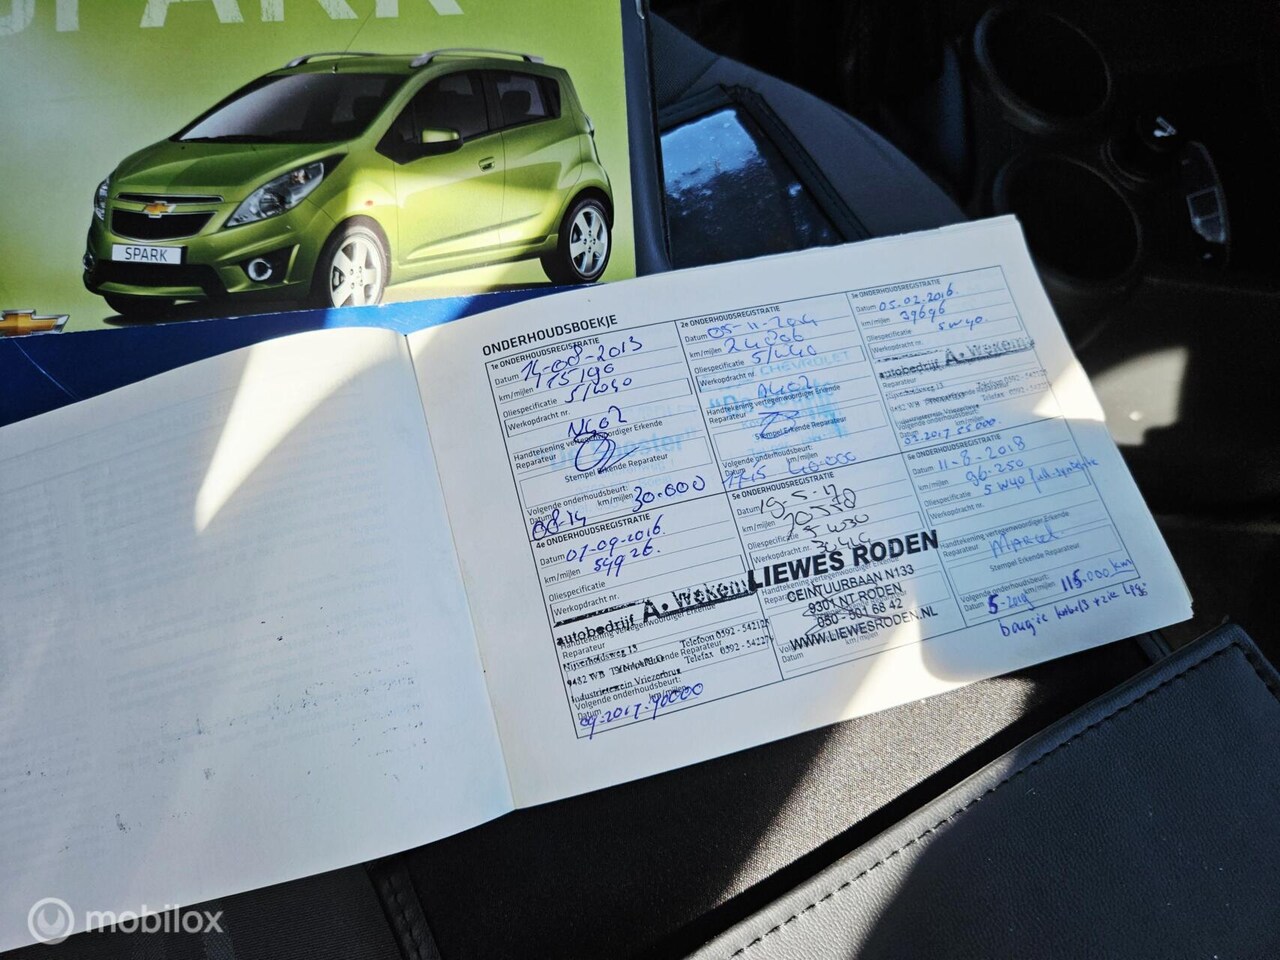 SPARK
SPARK
ONDERHOUDSBOEKJE
1e ONDERHOUDSREGISTRATIE
Datum 14-08-2013
km/mijlen 15196
Oliespecificatie 5/W40
Werkopdracht nr.
Handtekening vertegenwoordiger Erkende
Reparateur
Stempel Erkende Reparateur
Volgende onderhoudsbeurt:
Datum km/mijlen
08-14 30.000
2e ONDERHOUDSREGISTRATIE
Datum 05-11-2014
km/mijlen
Oliespecificatie 5/W40
Werkopdracht nr.
CHEVROLET
Handtekening vertegenwoordiger Erkende
Reparateur
Stempel Erkende Reparateur
Volgende onderhoudsbeurt:
Datum km/mijlen
11-15 40.000
3e ONDERHOUDSREGISTRATIE
Datum 05.02.2016.
km/mijlen 39696
Oliespecificatie 5W40
Werkopdracht nr.
autobedrijf A. Wekema
Reparateur
Volgende onderhoudsbeurt:
4e ONDERHOUDSREGISTRATIE
Datum 01-09-2016.
km/mijlen 54926.
Oliespecificatie
Werkopdracht nr.
autobedrijf A. Wekema
Handtekening vertegenwoordiger Erkende
Reparateur Telefoon 0592-542128
Nijverheidsweg 13
9482 WB TYNAARLO Telefax 0592-
Industrieterrein Vriezerbrug
Volgende onderhoudsbeurt:
Datum km/mijlen
09-2017-90000
5e ONDERHOUDSREGISTRATIE
Datum 19-5-17
km/mijlen 70550
Oliespecificatie 5W30
Werkopdracht nr.
LIEWES RODEN
CEINTUURBAAN N133
9301 NT RODEN
050-501 68 42
WWW.LIEWESRODEN.NL
Datum km/mijlen
6e ONDERHOUDSREGISTRATIE
Datum 11-8-2018
km/mijlen 96-250
Oliespecificatie 5W40 full-synthetic
Werkopdracht nr.
Handtekening vertegenwoordiger Erkende
Reparateur Marcel
Stempel Erkende Reparateur
Volgende onderhoudsbeurt:
Datum 5-2019 km/mijlen 115.000 km
bougie kabels
mobilox